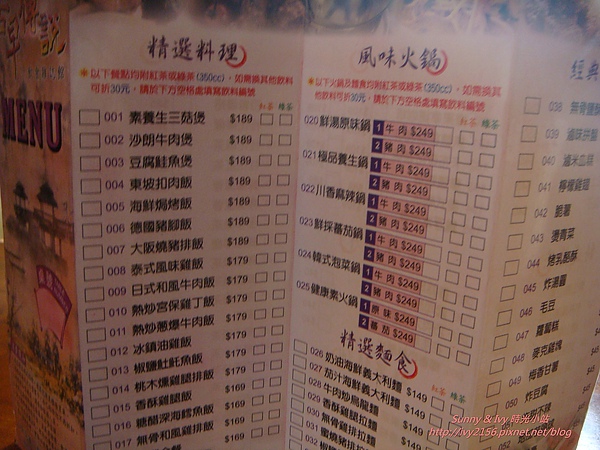 MENU
精選料理
＊以下餐點均附紅茶或綠茶(350cc)，如需換其他飲料
可折30元，請於下方空格處填寫飲料編號
紅茶 綠茶
001 素養生三菇煲 $189
002 沙朗牛肉煲 $189
003 豆腐鮭魚煲 $189
004 東坡扣肉飯 $189
005 海鮮焗烤飯 $189
006 德國豬腳飯 $189
007 大阪燒豬排飯 $179
008 泰式風味雞飯 $179
009 日式和風牛肉飯 $179
010 熱炒宮保雞丁飯 $179
011 熱炒蔥爆牛肉飯 $179
012 冰鎮油雞飯 $179
013 椒鹽魠魠魚飯 $179
014 桃木燻雞腿排飯 $169
015 香酥雞腿飯 $169
016 糖醋深海鱈魚飯 $169
017 無骨和風雞排飯 $169
風味火鍋
＊以下火鍋及麵食均附紅茶或綠茶(350cc)，如需換其
他飲料可折30元，請於下方空格處填寫飲料編號
紅茶 綠茶
020 鮮湯原味鍋 1 牛肉 $249
2 豬肉 $249
021 極品養生鍋 1 牛肉 $249
2 豬肉 $249
022 川香麻辣鍋 1 牛肉 $249
2 豬肉 $249
023 鮮採蕃茄鍋 1 牛肉 $249
2 豬肉 $249
024 韓式泡菜鍋 1 牛肉 $249
2 豬肉 $249
025 健康素火鍋 1 原味 $249
2 蕃茄 $249
精選麵食
紅茶 綠茶
026 奶油海鮮義大利麵 $149
027 茄汁海鮮義大利麵 $149
028 牛肉炒烏龍麵 $149
029 香酥雞腿拉麵
030 無骨雞排拉麵
031 蜜燒豬排拉麵
032
經典
038
039 滷味拼盤
040 滷米血糕
041 檸檬雞翅
042 脆薯
043 燙青菜
044 烤乳酪酥
045 炸湯圓
046 毛豆
047 蘿蔔糕
048 麥克雞塊
049 梅香甘薯
050 炸豆腐
Sunny & Ivy 時光小站
http://ivy2156.pixnet.net/blog